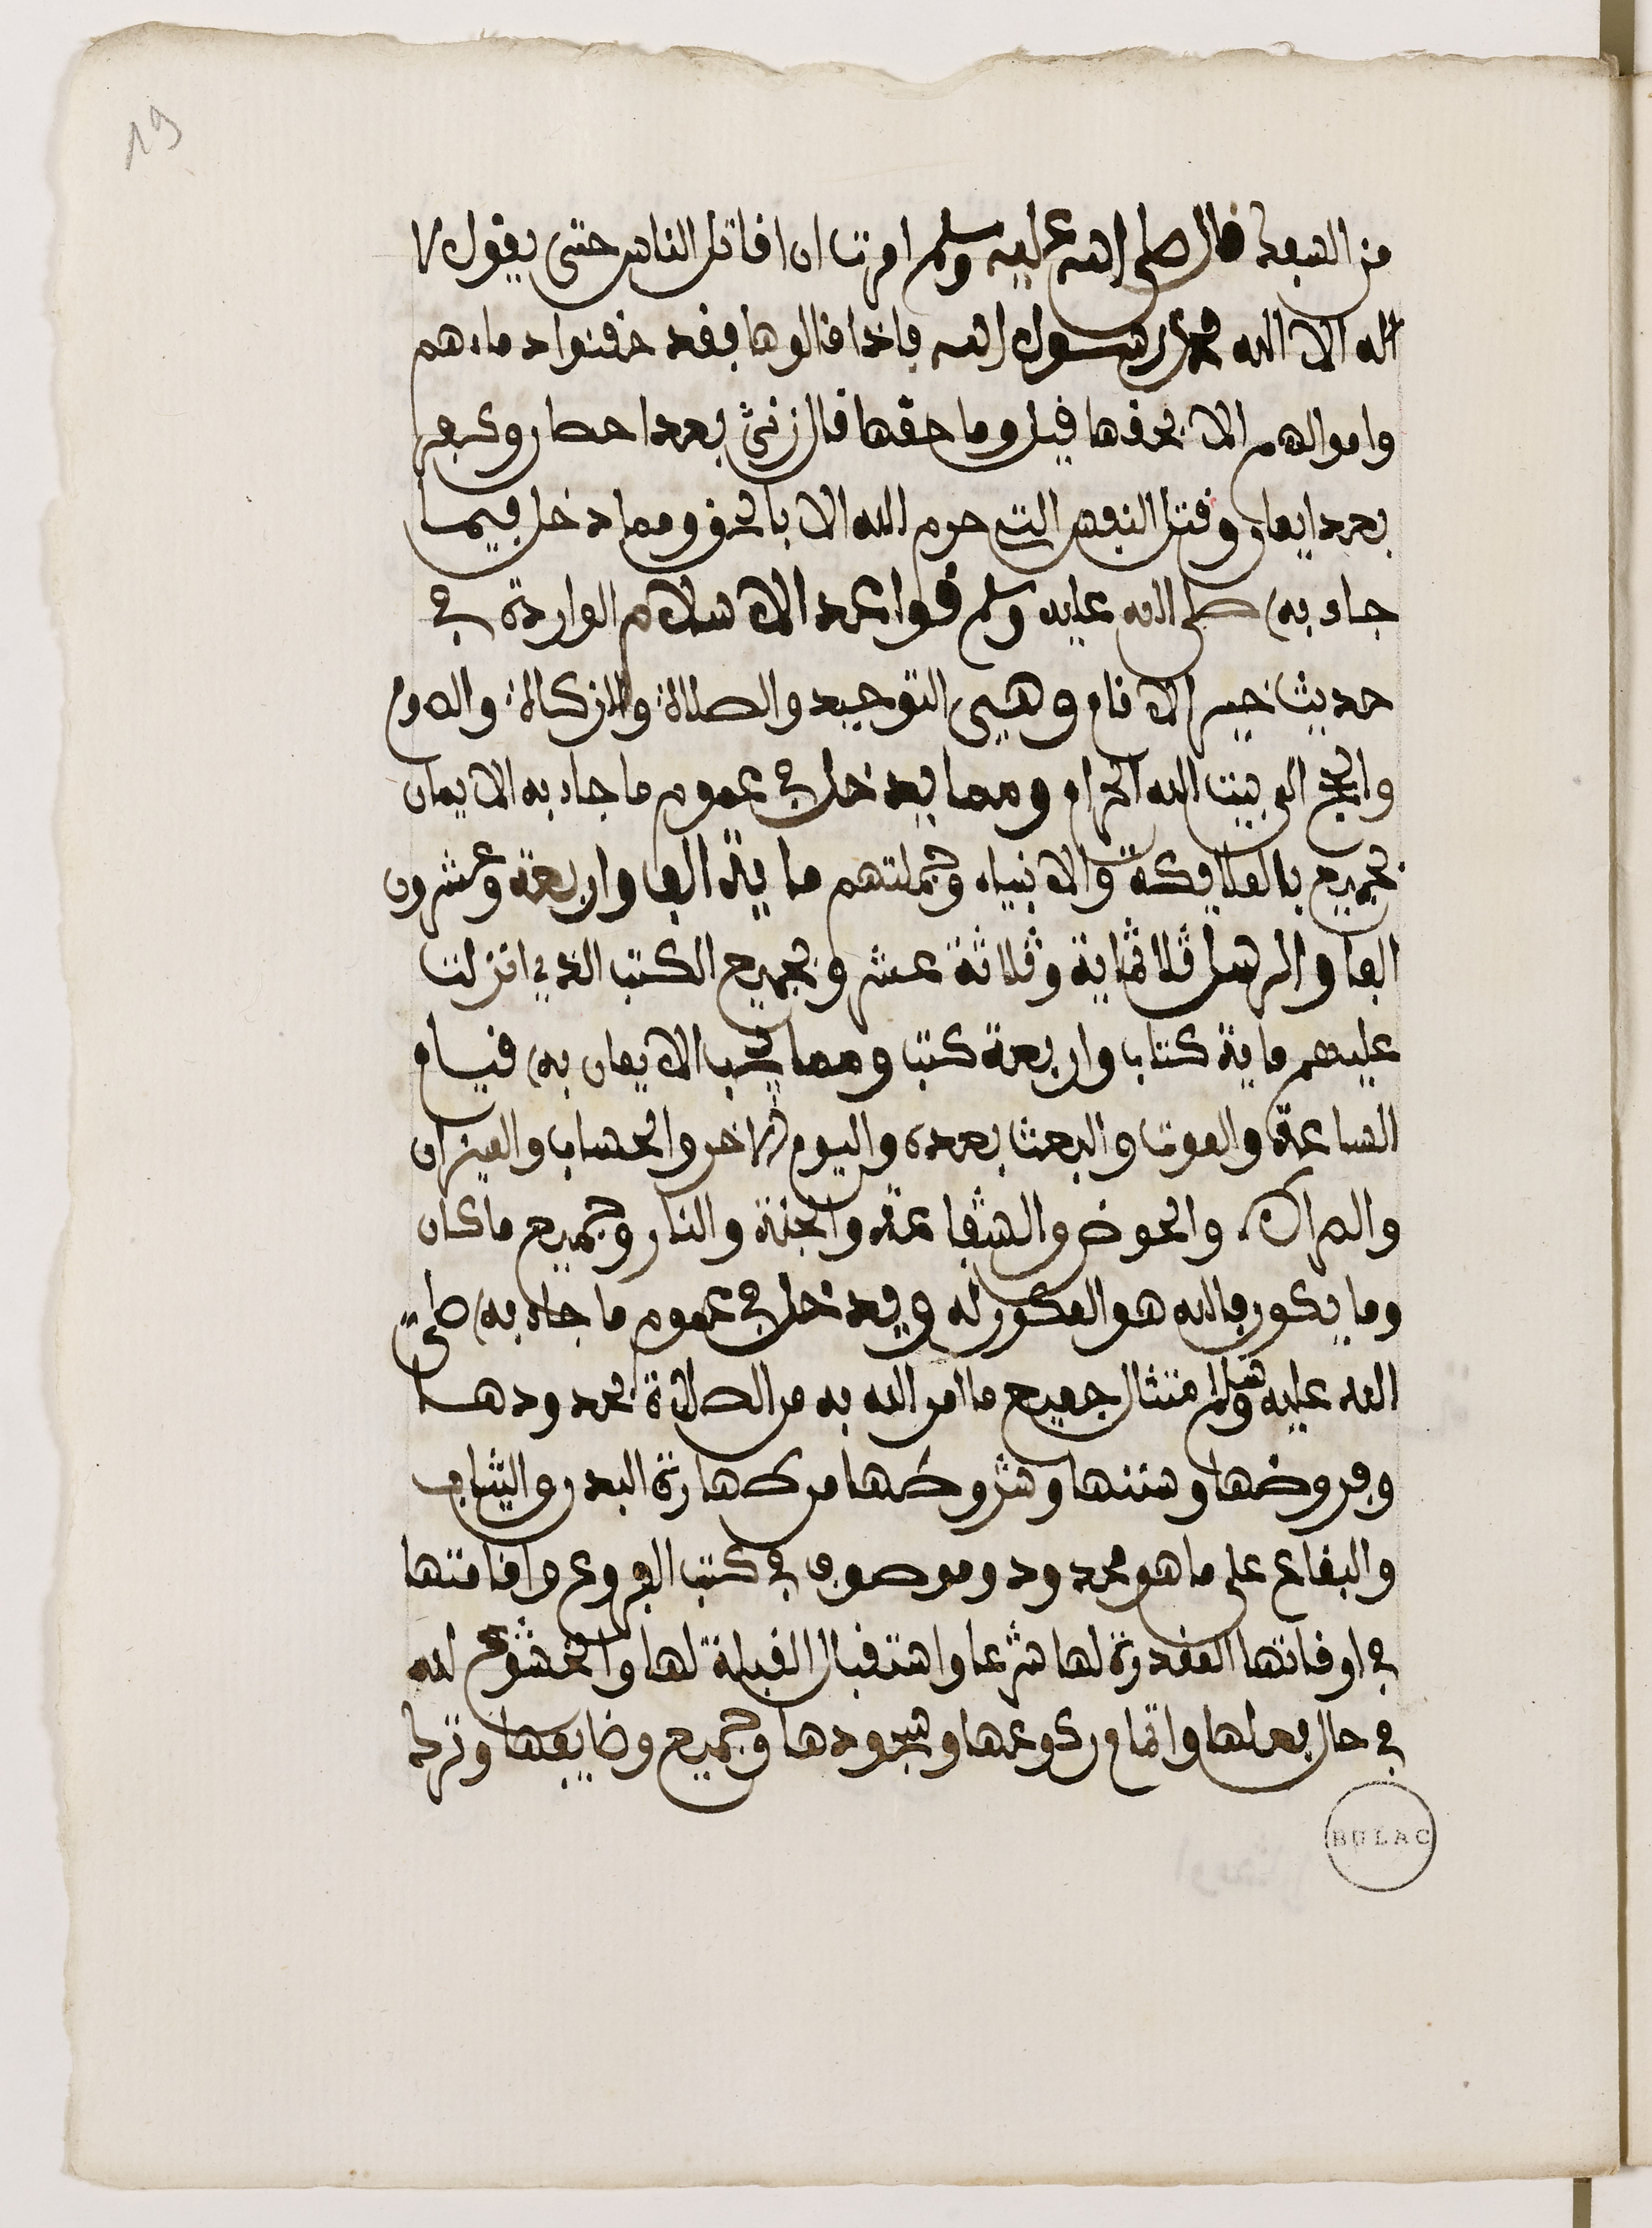 19
من السبعة قال صلى الله عليه وسلم امرت ان اقاتل الناس حتى يقول لا
اله الا الله محمد رسول الله فاذا قالوها فقد حقنوا دماءهم
واموالهم الا بحقها قيل وما حقها قال زنى بعد احصار وكفر
بعد ايمان وقتل النفس التي حرم الله الا بالحق ومما دخل فيما
جاء به صلى الله عليه وسلم قواعد الاسلام الواردة في
حديث خير الانام وهي التوحيد والصلاة والزكاة والصوم
والحج الى بيت الله الحرام ومما يدخل في عموم ما جاء به الايمان
بجميع بالملايكة والانبياء وجملتهم ماية الف واربعة وعشرون
الفا والرسل ثلاثماية وثلاثة عشر وبجميع الكتب الذي انزلت
عليهم ماية كتاب واربعة كتب ومما يجب الايمان به قيام
الساعة والموت والبعث بعده واليوم الاخر والحساب والميزان
والصراط والحوض والشفاعة والجنة والنار وجميع ما كان
وما يكون فالله هو المكور له ويدخل في عموم ما جاء به صلى
الله عليه وسلم امتثال جميع ما امر الله به من الصلاة بحدودها
وفروضها وسننها وشروطها من طهارة البدن والثياب
والبقاع على ما هو محدود وموصوف في كتب الفروع واقامتها
في اوقاتها المقدرة لها شرعا واستقبال القبلة لها والخشوع لله
في حال فعلها واتمام ركوعها وسجودها وجميع وضايفها وترك
BULAC